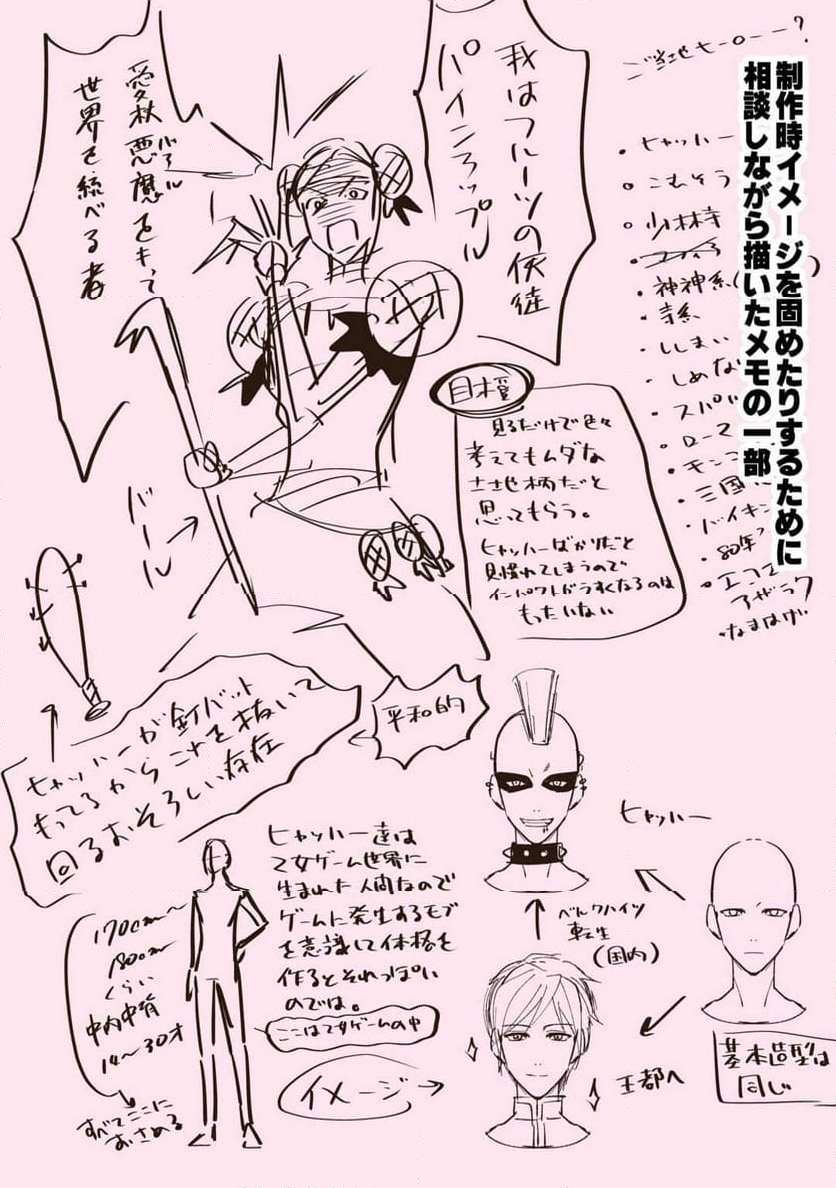 制作時イメージを固めたりするために
相談しながら描いたメモの一部
ご当地ヒーロー？
・ヒャッハー
○こむそう
○少林寺
・神神系
寺系
・ししまい
・しめな
・スパ
○ローマ
・モンゴ
・三国
・バイキン
・80年
・エコエコ
アザラク
・なまはげ
我はフルーツの使徒
パイナップル
愛秋悪魔をキて
世界を統べる者
バール
目標
見るだけで色々
考えてもムダな
土地柄だと
思ってもらう。
ヒャッハーばかりだと
見慣れてしまうので
インパクトがうすくなるのは
もったいない
平和的
ヒャッハーが釘バット
もってるからコナを抜いて
回るおそろしい存在
ヒャッハー達は
乙女ゲーム世界に
生まれた人間なので
ゲームに発生するモブ
を意識して体格を
作るとそれっぽい
のでは。
ここは乙女ゲームの中
170cm〜
180cm
くらい
中肉中背
14〜30才
すべてここに
おさめる
イメージ
ヒャッハー
ベルクハイツ
転生
(国内)
王都へ
基本造型は
同じ